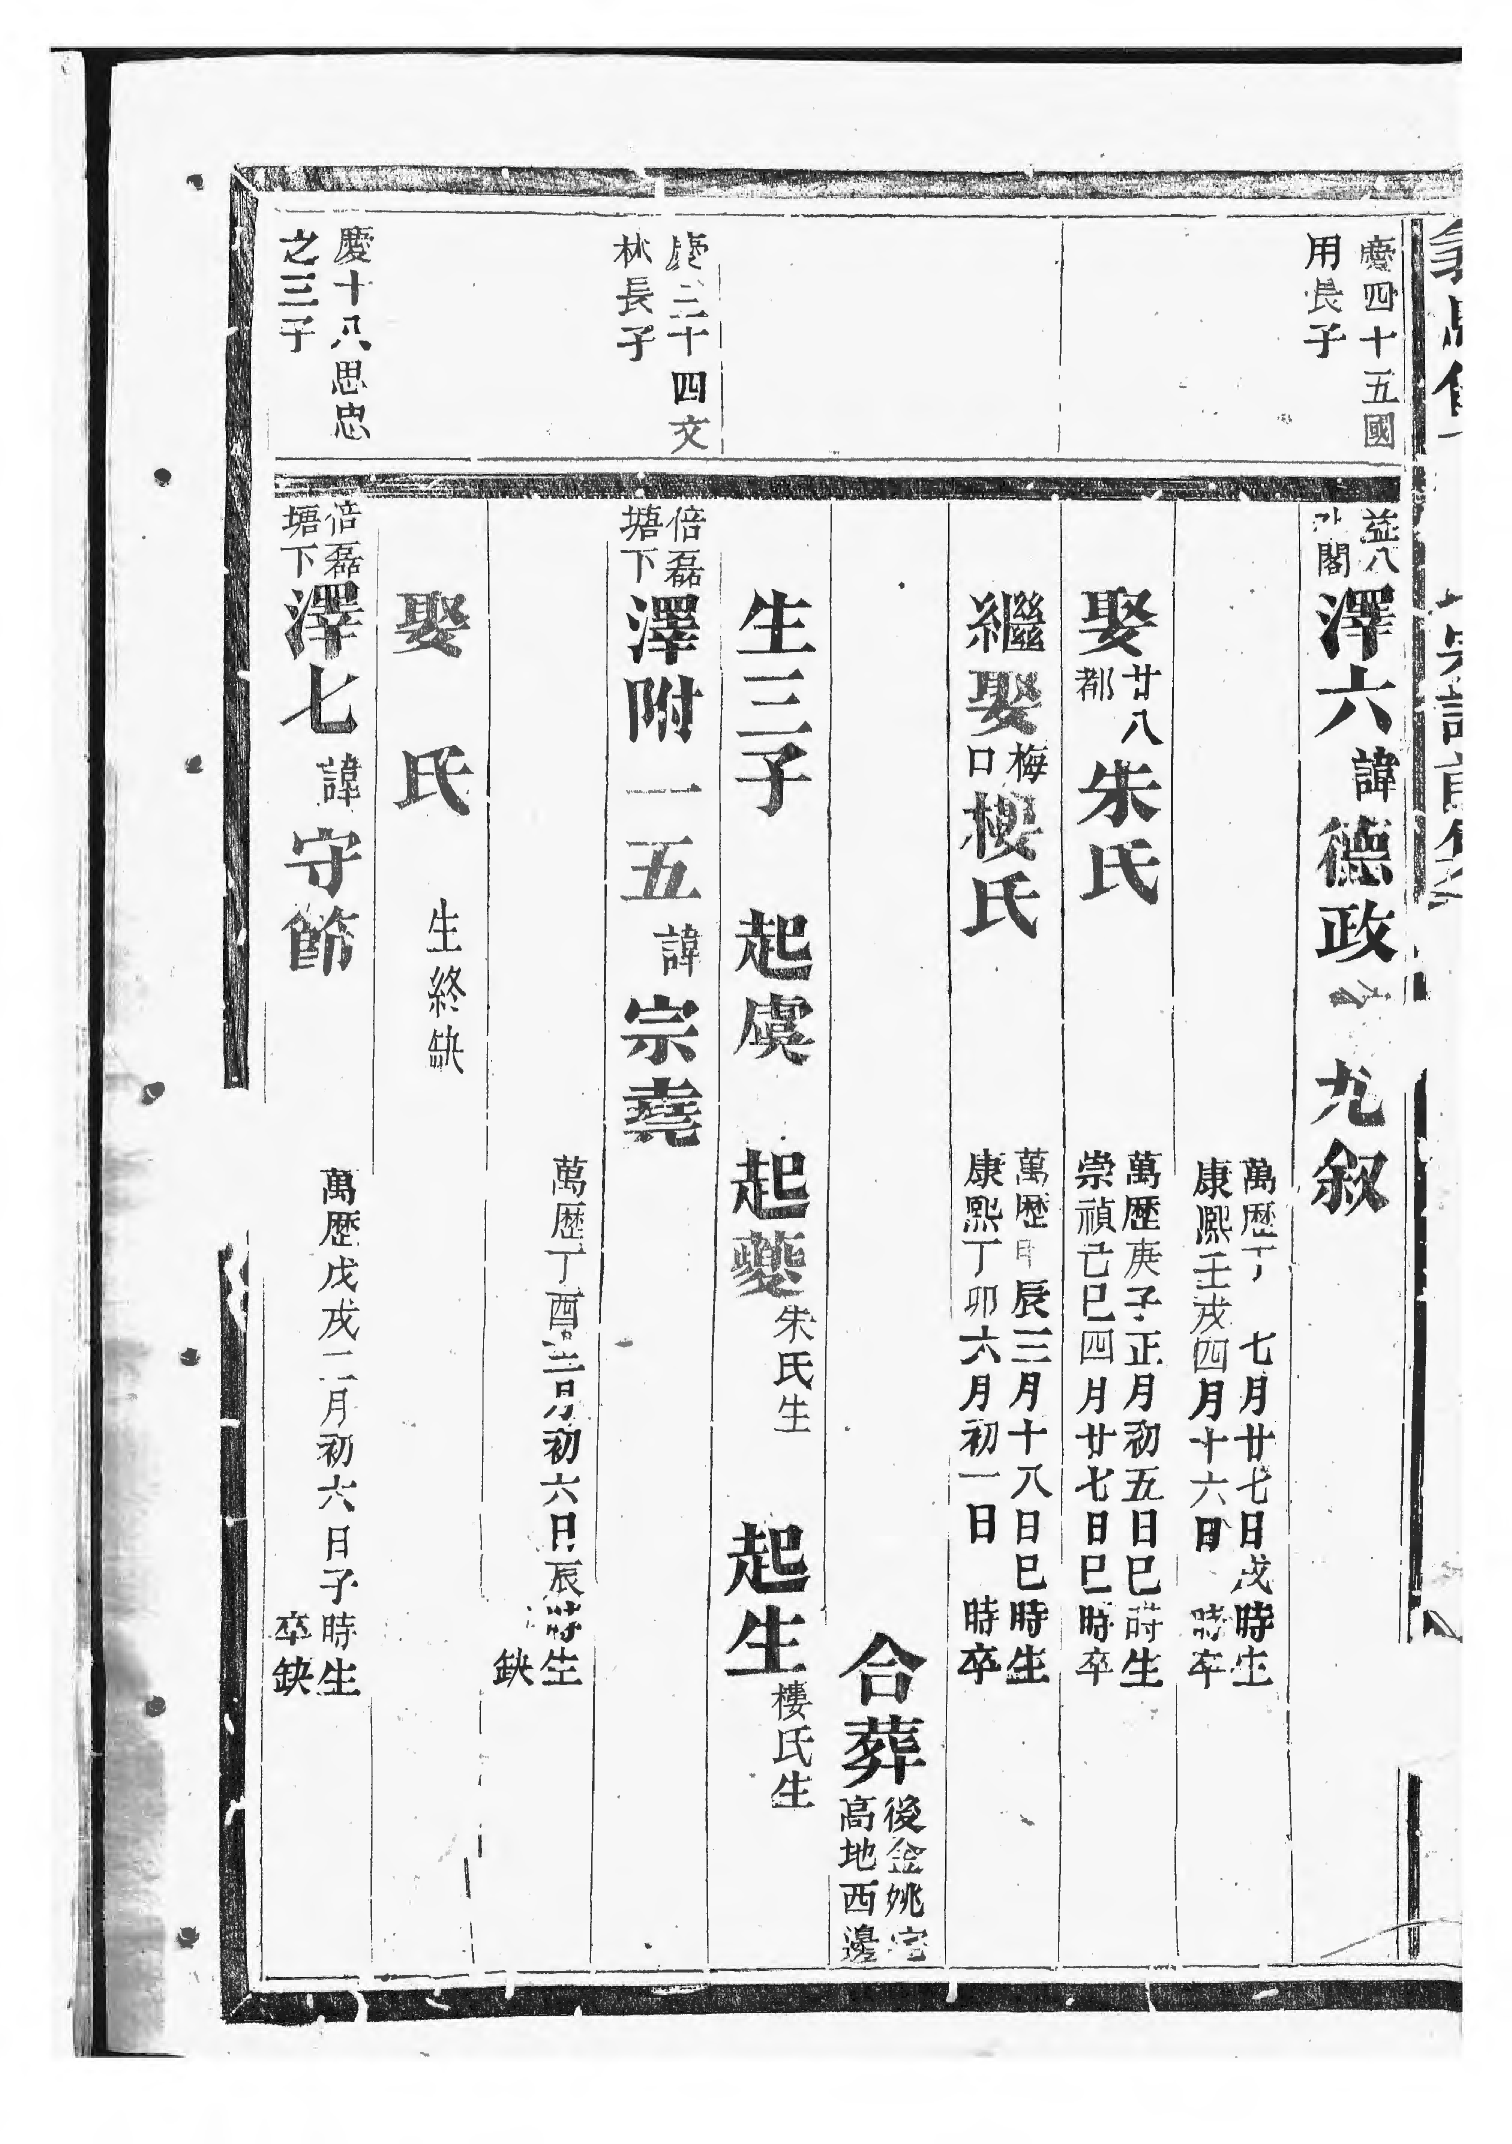 慶四十五國
用長子
益八
閣
澤六諱德政
九叙
萬歷丁 七月廿七日戌時生
康熙壬戌四月十六日 時卒
娶廿八都朱氏
萬歷庚子正月初五日巳時生
崇禎己巳四月廿七日巳時卒
繼娶梅口樓氏
萬歷甲辰三月十八日巳時生
康熙丁卯六月初一日 時卒
合葬
後金姚宅
高地西邊
生三子 起虞 起夔朱氏生 起生樓氏生
慶三十四文
林長子
倍磊
塘下
澤附一五諱宗堯
萬歷丁酉 月初六日辰時生
缺
娶 氏 生終缺
慶十八思忠
之三子
倍磊
塘下
澤七諱守節
萬歷戊戌二月初六日子時生
卒缺